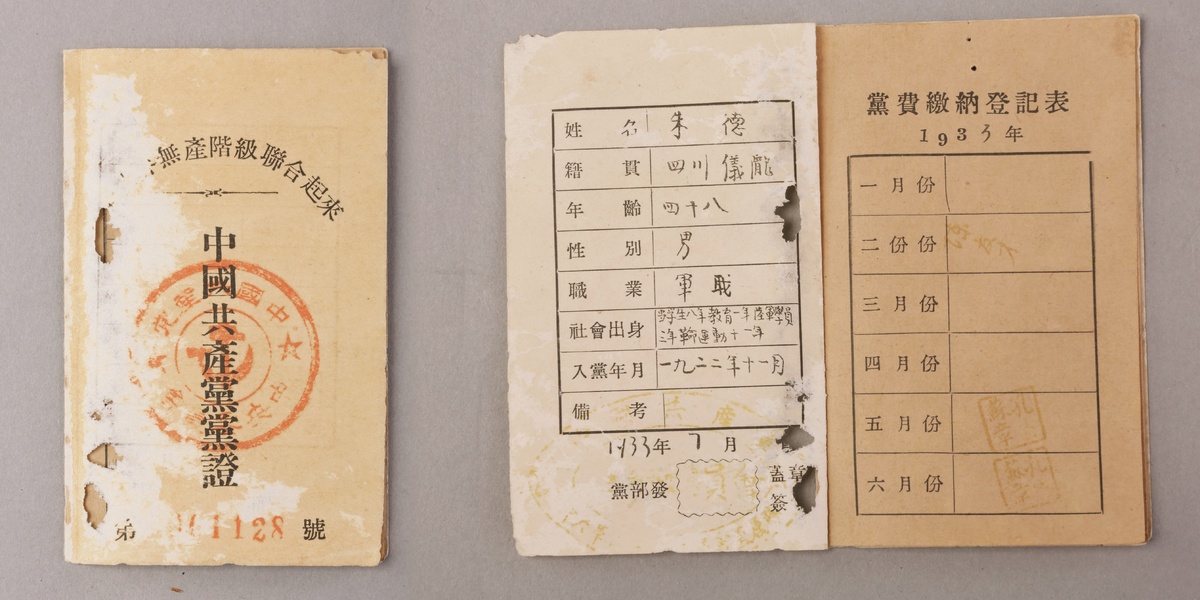 無產階級聯合起來
中國共產黨黨證
第 1128 號
姓名 朱德
籍貫 四川儀隴
年齡 四十八
性別 男
職業 軍職
社會出身 學生八年教育一年陸軍學員
年革命運動十一年
入黨年月 一九二二年十一月
備考
1933年7月
黨部發
蓋章
簽
黨費繳納登記表
1933年
一月份
二份份
三月份
四月份
五月份
六月份